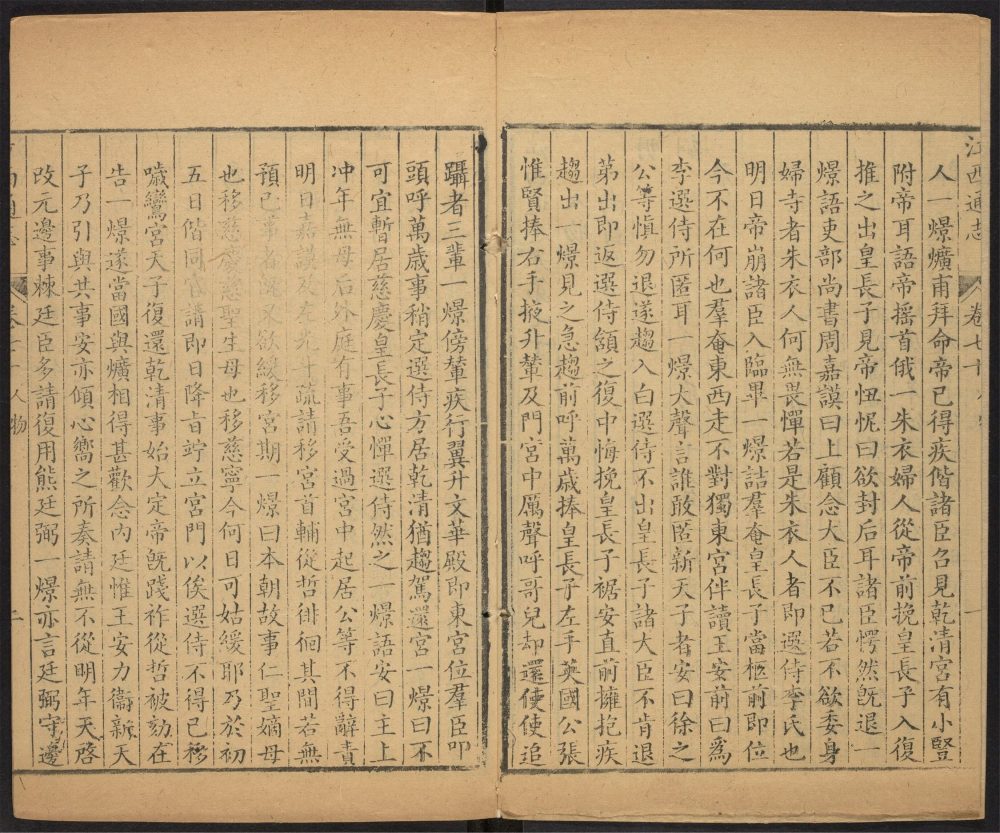 江西通志
卷七十
人一燝爌甫拜命帝已得疾偕諸臣召見乾清宮有小豎
附帝耳語帝摇首俄一朱衣婦人從帝前挽皇長子入復
推之出皇長子見帝忸怩曰欲封后耳諸臣愕然旣退一
燝語吏部尚書周嘉謨曰上顧念大臣不已若不欲委身
婦寺者朱衣人何無畏憚若是朱衣人者即選侍李氏也
明日帝崩諸臣入臨畢一燝詰羣奄皇長子當柩前即位
今不在何也羣奄東西走不對獨東宮伴讀王安前曰爲
李選侍所匿耳一燝大聲言誰敢匿新天子者安曰徐之
公等愼勿退遂趨入白選侍不出皇長子諸大臣不肯退
苐出即返選侍頷之復中悔挽皇長子裾安直前擁抱疾
趨出一燝見之急趨前呼萬歲捧皇長子左手英國公張
惟賢捧右手掖升輦及門宮中厲聲呼哥兒却還使使追
躡者三輩一燝傍輦疾行翼升文華殿即東宮位羣臣叩
頭呼萬歲事稍定選侍方居乾清猶趨駕還宮一燝曰不
可宜暫居慈慶皇長子心憚選侍然之一燝語安曰主上
冲年無母后外庭有事吾受過宮中起居公等不得辭責
明日嘉謨及左 疏請移宮首輔從哲徘徊其間若無
預已事者 又欲緩移宮期一燝曰本朝故事仁聖嫡母
也移慈慶慈聖生母也移慈寧今何日可姑緩耶乃於初
五日偕同官請即日降旨竚立宮門以俟選侍不得已移
噦鸞宮天子復還乾清事始大定帝旣踐祚從哲被劾在
告一燝遂當國與爌相得甚歡念內廷惟王安力衞新天
子乃引與共事安亦傾心嚮之所奏請無不從明年天啓
改元邊事棘廷臣多請復用熊廷弼一燝亦言廷弼守邊
人物
二